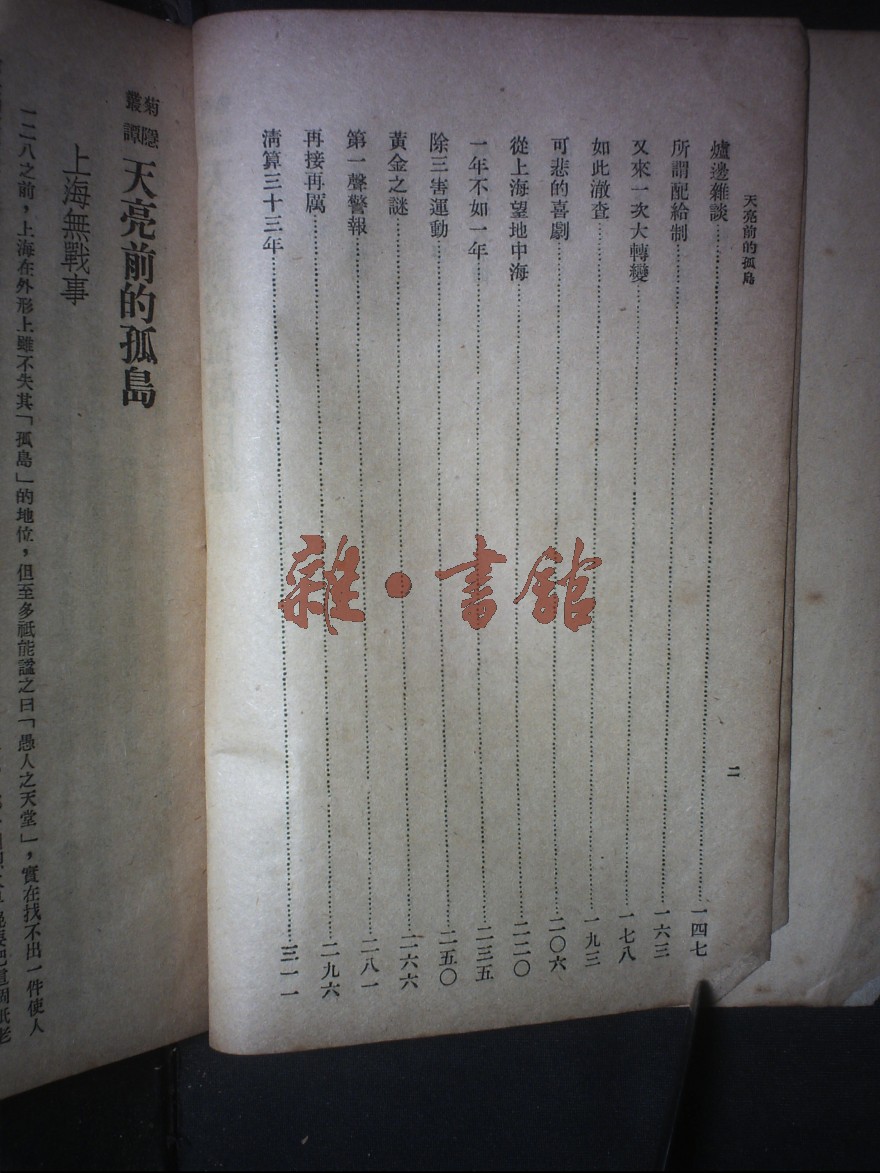 天亮前的孤島
二
爐邊雜談……一四七
所謂配給制……一六三
又來一次大轉變……一七八
如此澈查……一九三
可悲的喜劇……二〇六
從上海望地中海……二二〇
一年不如一年……二三五
除三害運動……二五〇
黃金之謎……二六六
第一聲警報……二八一
再接再厲……二九六
清算三十三年……三一一
菊隱叢譚
天亮前的孤島
上海無戰事
一二八之前，上海在外形上雖不失其「孤島」的地位，但至多祗能謚之曰「愚人之天堂」，實在找不出一件使人
雜·書館